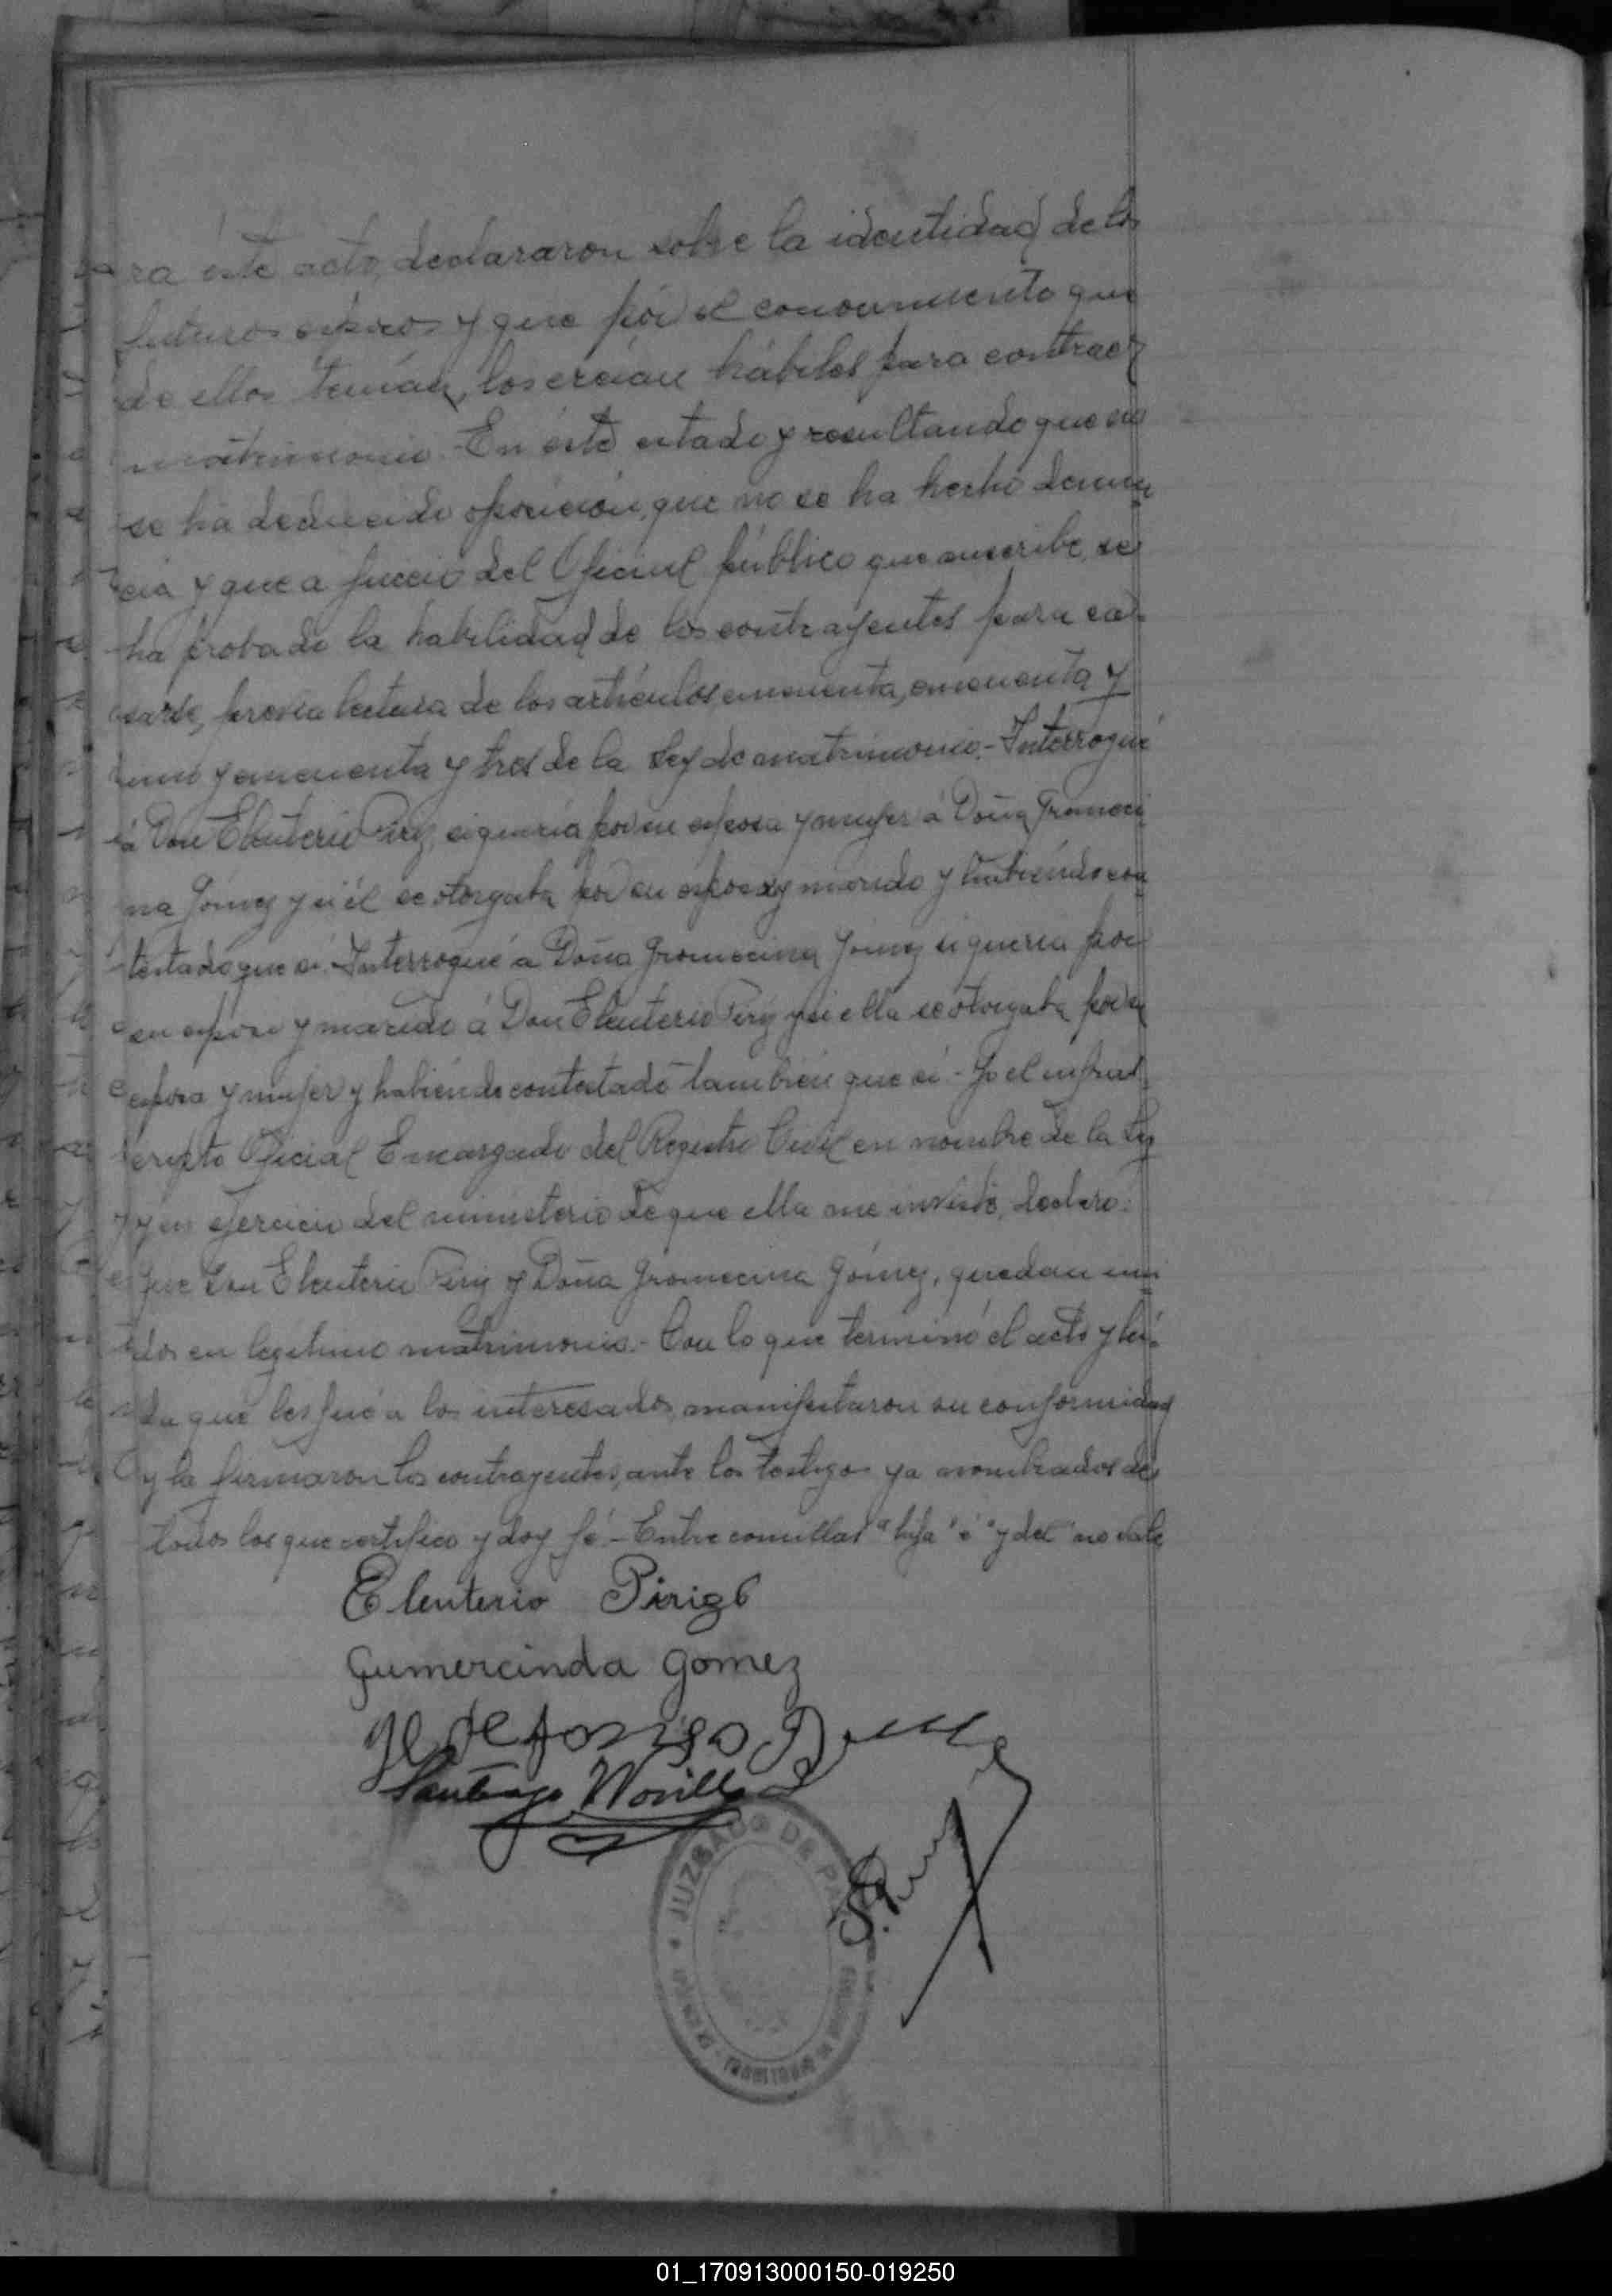 ra éste acto, declararon sobre la identidad de los
futuros esposos y que por el conocimiento que
de ellos tenían, los creían hábiles para contraer
matrimonio.- En éste estado y resultando que no
se ha deducido oposición, que no se ha hecho denun
cia y que a juicio del Oficial público que suscribe, se
ha probado la habilidad de los contrayentes para ca-
sarse, previa lectura de los artículos cincuenta, cincuenta y
uno y cincuenta y tres de la Ley de matrimonio.- Interrogué
á Don Eleuterio Piriz, si quería por su esposa y mujer á Doña Gromeci
na Gómez y si él se otorgaba por su esposo y marido y habiendo con
testado que sí.- Interrogué a Doña Gromecina Gómez si quería por
su esposo y marido á Don Eleuterio Piriz y si ella se otorgaba por su
esposa y mujer y habiendo contestado también que sí.- Yo el infras
cripto Oficial Encargado del Registro Civil en nombre de la Ley
y en ejercicio del ministerio de que ella me inviste, declaro:
que Don Eleuterio Piriz y Doña Gromecina Gómez, quedan uni
dos en legítimo matrimonio.- Con lo que terminó el acto y leí-
da que les fué a los interesados, manifestaron su conformidad
y la firmaron los contrayentes, ante los testigos ya nombrados de
todos los que certifico y doy fé.- Entre comillas "hija" é "y del" no vale
Eleuterio Piriz
Gumercinda Gomez
Ildefonso
Santiago
JUZGADO DE PAZ
01_170913000150-019250